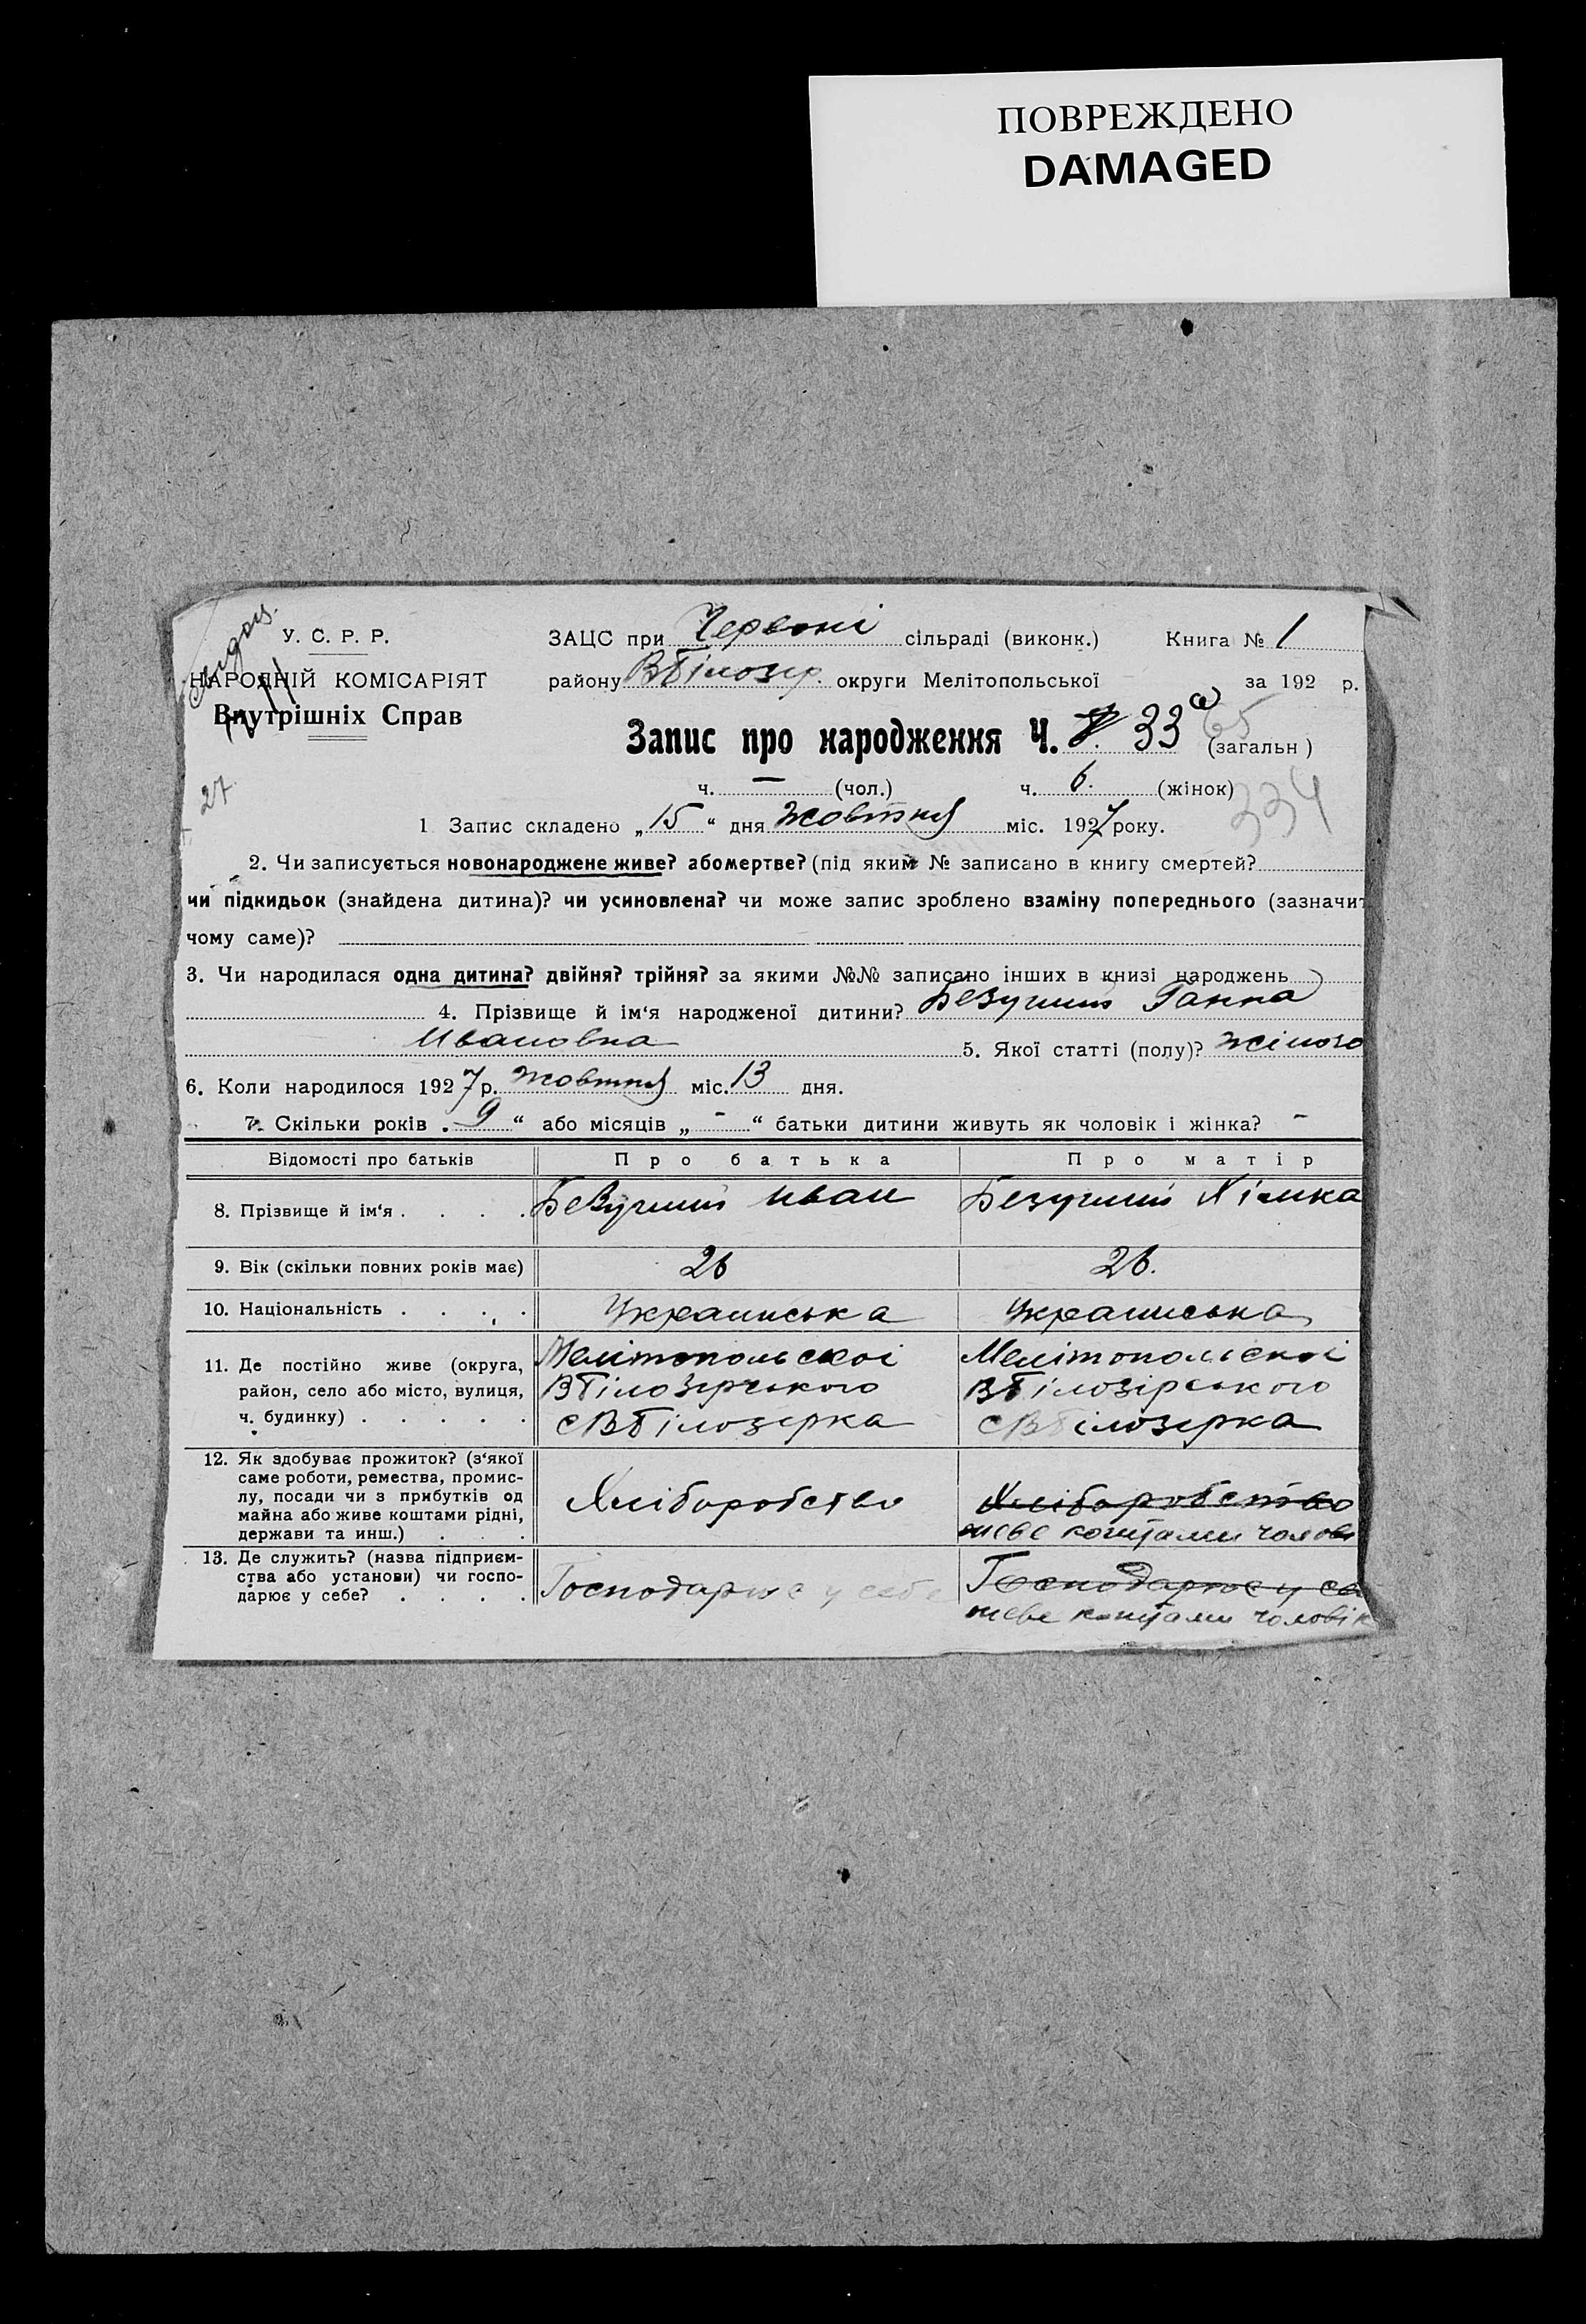 ПОВРЕЖДЕНО
DAMAGED
У. С. Р. Р.
НАРОДНІЙ КОМІСАРІЯТ
Внутрішніх Справ
27
ЗАЦС при Червоні сільраді (виконк.) Книга № 1
району ВБілозер. округи Мелітопольської за 192 р.
Запис про народження Ч. 33 (загальн)
65
ч. — (чол.) ч. 6. (жінок)
334
1 Запис складено „15“ дня жовтня міс. 1927 року.
2. Чи записується новонароджене живе? або мертве? (під яким № записано в книгу смертей?
чи підкидьок (знайдена дитина)? чи усиновлена? чи може запис зроблено взаміну попереднього (зазначит
чому саме)?
3. Чи народилася одна дитина? двійня? трійня? за якими №№ записано інших в книзі народжень
4. Прізвище й ім‘я народженої дитини? Безуглий Ганна
Ивановна 5. Якої статті (полу)? жіночо
6. Коли народилося 1927 р. жовтня міс. 13 дня.
7. Скільки років „9“ або місяців „-“ батьки дитини живуть як чоловік і жінка? -
Відомості про батьків Про батька Про матір
8. Прізвище й ім‘я . . . . Безуглий Иван Безуглий Хімка
9. Вік (скільки повних років має) 26 26.
10. Національність . . . . Украинська Украинська
11. Де постійно живе (округа, Мелітопольскоі Мелітопольскоі
район, село або місто, вулиця, ВБілозерського ВБілозірського
ч. будинку) . . . . . с ВБілозерка с ВБілозерка
12. Як здобуває прожиток? (з‘якої
саме роботи, ремества, промис-
лу, посади чи з прибутків од Хліборобство Хліборобство
майна або живе коштами рідні, живе коштами чолов
держави та инш.) . . .
13. Де служить? (назва підприєм-
ства або установи) чи госпо- Господарює у себе Господарює у се
дарює у себе? . . . . живе коштами чоловік